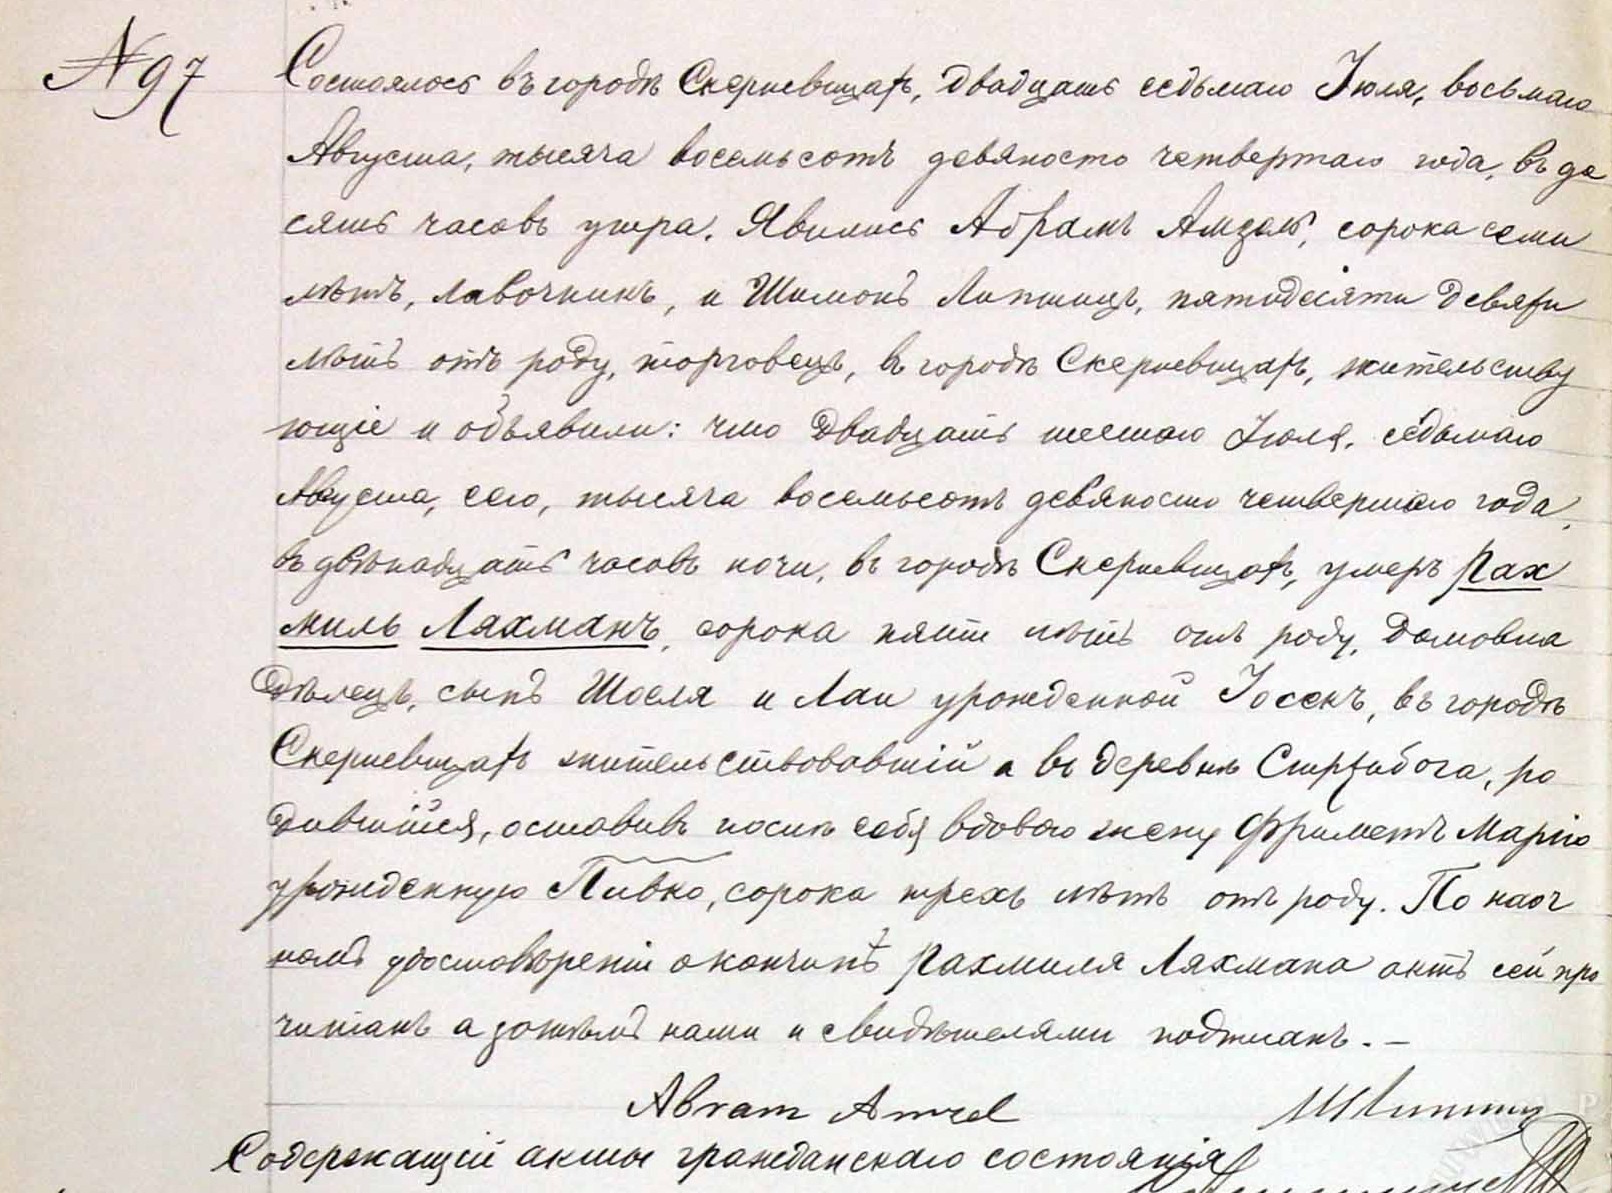 №97
Состоялось въ городѣ Скерневицахъ, двадцать седьмаго Іюля, восьмаго
Августа, тысяча восемьсотъ девяносто четвертаго года, въ де
сять часовъ утра. Явились Абрамъ Амзель, сорока семи
лѣтъ, лавочникъ, и Шимонъ Липшицъ, пятидесяти девяти
лѣтъ отъ роду, торговецъ, в городѣ Скерневицахъ, жительству
ющіе и объявили: что двадцать шестаго Іюля, седьмаго
Августа, сего, тысяча восемьсотъ девяносто четвертаго года,
въ двѣнадцать часовъ ночи, въ городѣ Скерневицахъ, умеръ Рах
миль Ляхманъ, сорока пяти лѣтъ отъ роду, домовла
дѣлецъ, сынъ Шоеля и Лаи урожденной Іосекъ, въ городѣ
Скерневицахъ жительствовавшій а въ деревнѣ Стрзибога, ро
дившійся, оставивъ послѣ себя вдовою жену Фриметъ Марію
урожденную Пивко, сорока трехъ лѣтъ отъ роду. По наоч
номъ удостовѣреніи о кончинѣ Рахмиля Ляхмана актъ сей про
читанъ а затѣмъ нами и свидѣтелями подписанъ. –
Abram Amzel
Содержащій акты гражданскаго состоянія